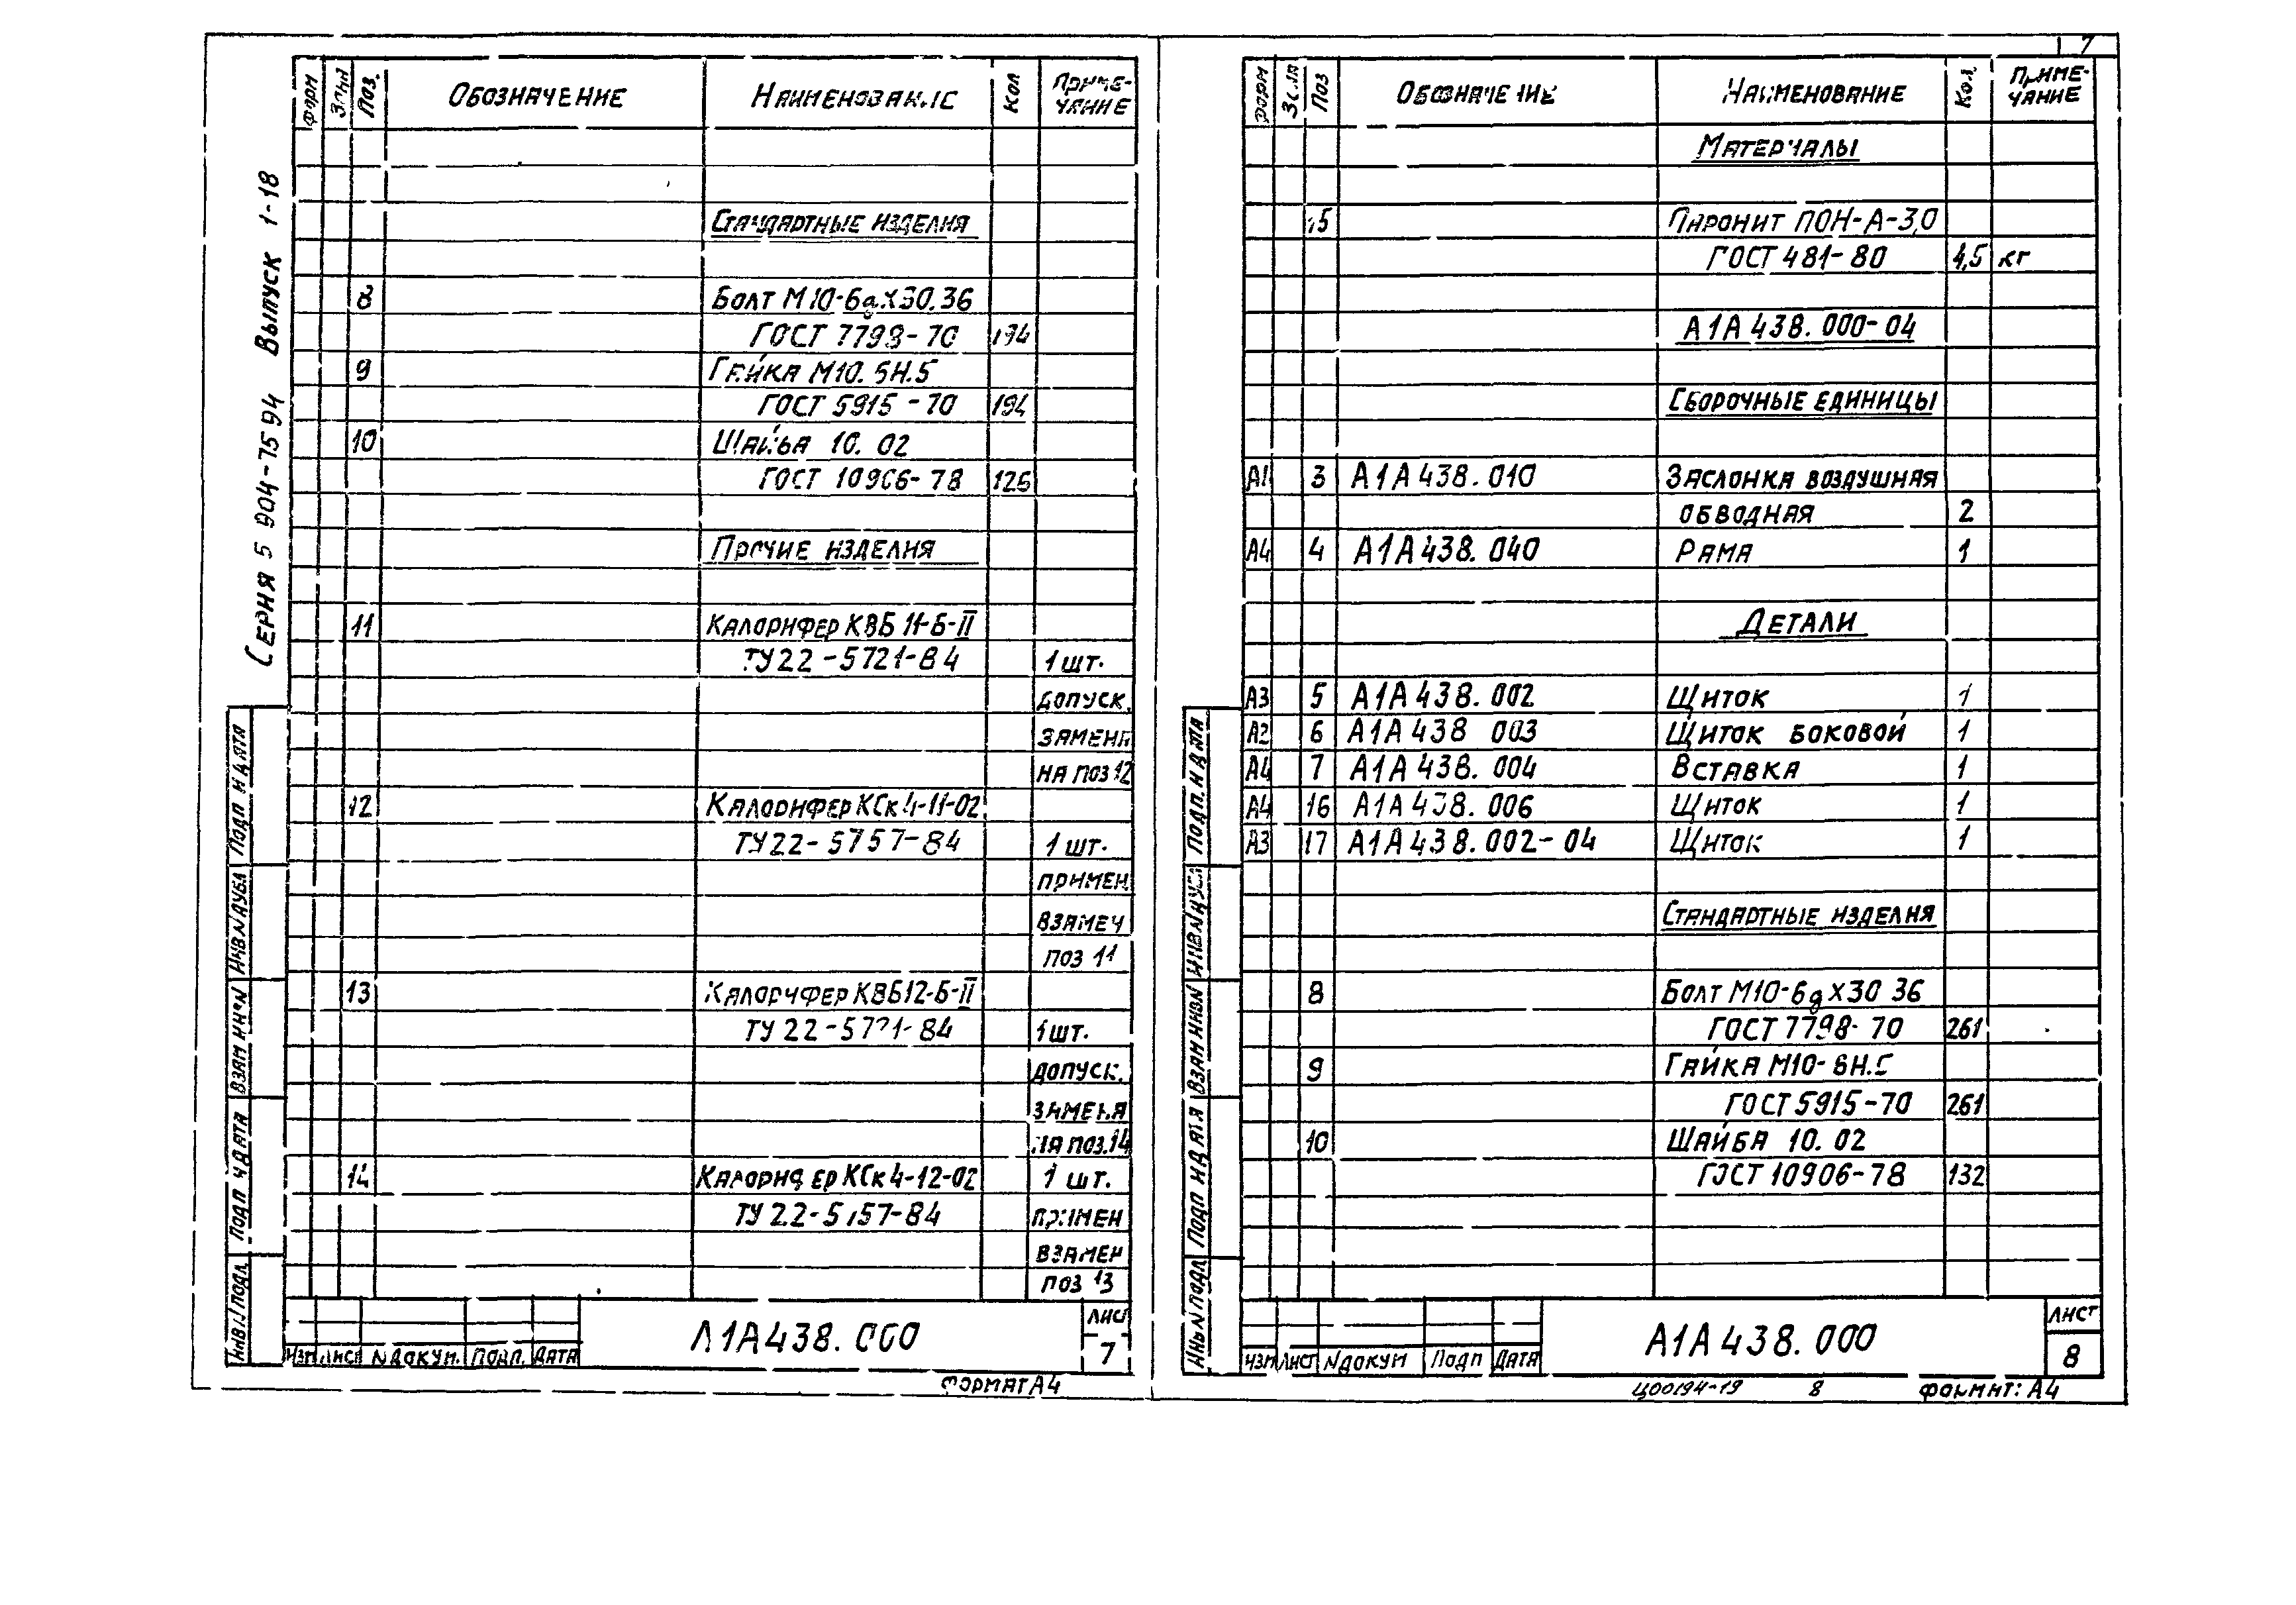 7
Серия 5 904-75 94 Выпуск 1-18
Форм Зона Поз. Обозначение Наименование Кол Примечание
Стандартные изделия
8 Болт М10-6gх30.36
ГОСТ 7798-70 194
9 Гайка М10. 6Н.5
ГОСТ 5915-70 194
10 Шайба 10. 02
ГОСТ 10906-78 126
Прочие изделия
11 Калорифер КВБ 11-Б-II
ТУ 22-5721-84 1 шт.
допуск.
замена
на поз 12
12 Калорифер КСк 4-11-02
ТУ 22-5757-84 1 шт.
примен
взамен
поз 11
13 Калорифер КВБ12-Б-II
ТУ 22-5721-84 1 шт.
допуск.
замена
на поз.14
14 Калорифер КСк 4-12-02 1 шт.
ТУ 22-5757-84 примен
взамен
поз 13
Подп и дата
Инв N дубл
Взам инв N
Подп и дата
Инв N подл.
Изм Лист N докум. Подп. Дата
А1А438.000
Лист
7
Формат А4
Форм Зона Поз Обозначение Наименование Кол. Примечание
Материалы
15 Паронит ПОН-А-3,0
ГОСТ 481-80 4,5 кг
А1А 438.000-04
Сборочные единицы
А1 3 А1А 438.010 Заслонка воздушная
обводная 2
А4 4 А1А 438.040 Рама 1
Детали
А3 5 А1А 438.002 Щиток 1
А2 6 А1А 438 003 Щиток боковой 1
А4 7 А1А 438.004 Вставка 1
А4 16 А1А 438.006 Щиток 1
А3 17 А1А 438.002-04 Щиток 1
Стандартные изделия
8 Болт М10-6gх30 36
ГОСТ 7798-70 261
9 Гайка М10-6Н.5
ГОСТ 5915-70 261
10 Шайба 10. 02
ГОСТ 10906-78 132
Подп. и дата
Инв N дубл
Взам инв N
Подп и дата
Инв N подл
Изм Лист N докум Подп Дата
А1А 438.000
Лист
8
Ц00194-19 8 Формат: А4